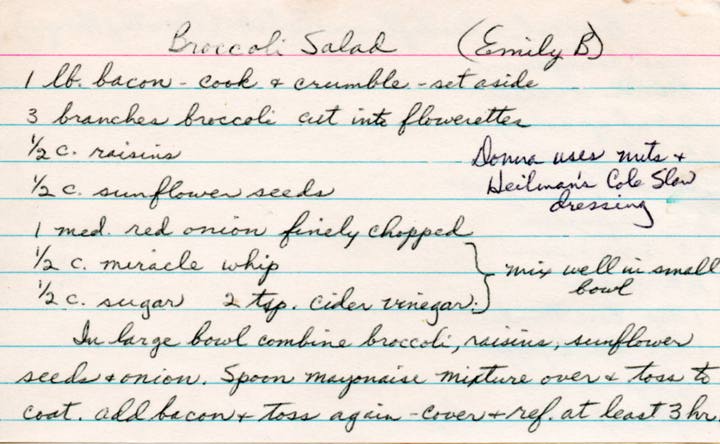 Broccoli Salad (Emily B)
1 lb. bacon - cook & crumble - set aside
3 branches broccoli cut into flowerettes
1/2 c. raisins
Donna uses nuts &
Heilman's Cole Slaw
dressing
1/2 c. sunflower seeds
1 med. red onion finely chopped
1/2 c. miracle whip
1/2 c. sugar 2 tsp. cider vinegar.
mix well in small
bowl
In large bowl combine broccoli, raisins, sunflower
seeds & onion. Spoon mayonaise mixture over & toss to
coat. add bacon & toss again - cover & ref. at least 3 hr.